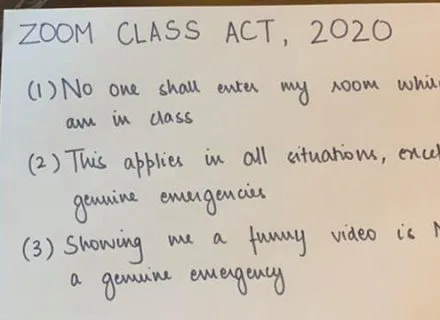 ZOOM CLASS ACT, 2020
(1) No one shall enter my room
am in class
(2) This applies in all situations,
genuine emergencies
(3) Showing me a funny video is
a genuine emergency